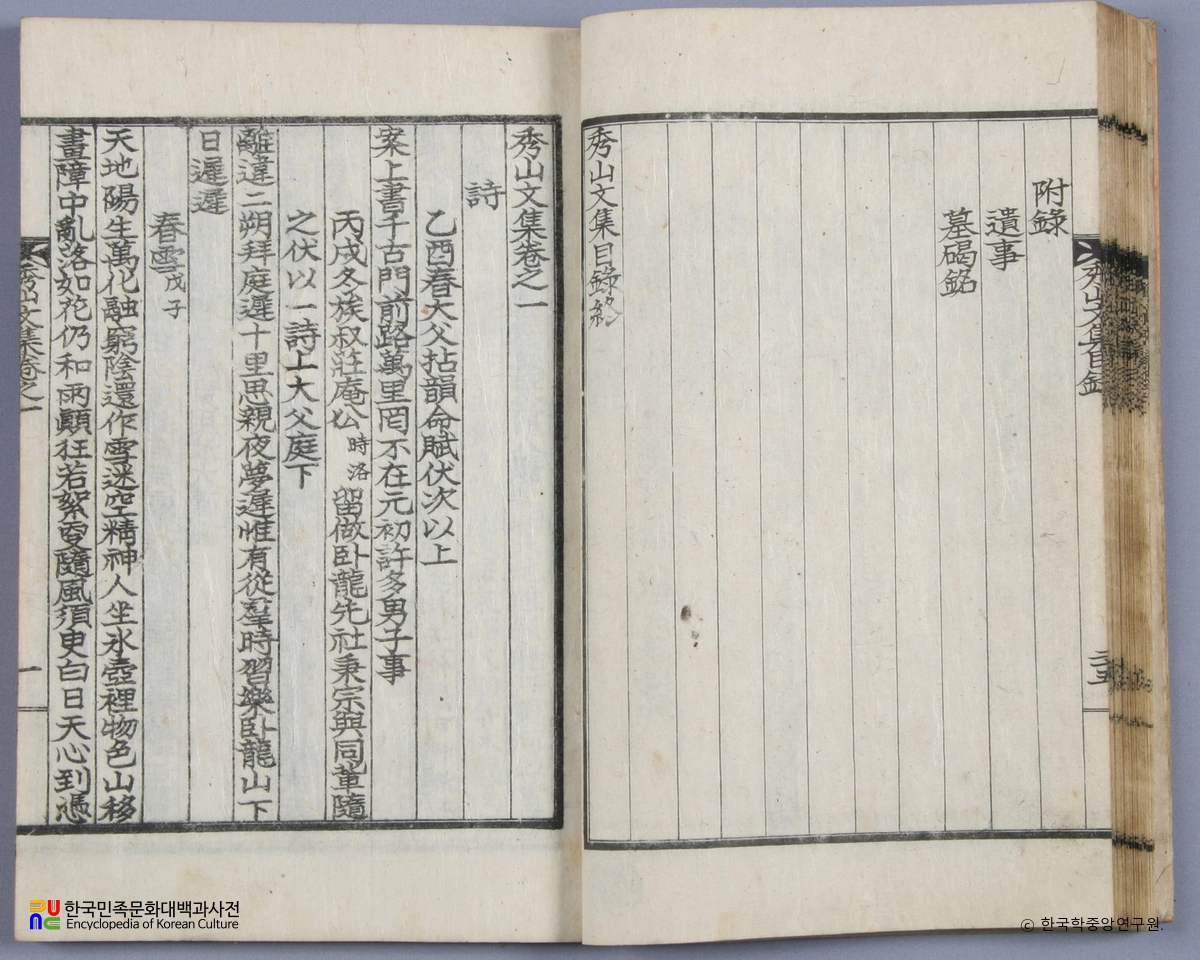 秀山文集目錄
二十五
附錄
遺事
墓碣銘
秀山文集目錄終
秀山文集卷之一
詩
乙酉春大父拈韻命賦伏次以上
案上書千古門前路萬里罔不在元初許多男子事
丙戌冬族叔莊庵公時洛留做臥龍先社秉宗與同輩隨
之伏以一詩上大父庭下
離違二朔拜庭遲十里思親夜夢遲惟有從羣時習樂臥龍山下
日遲遲
春雪戊子
天地陽生萬化融窮陰還作雪迷空精神人坐氷壺裡物色山移
畫障中亂落如花仍和雨顚狂若絮更隨風須臾白日天心到憑
秀山文集卷之一
一
한국민족문화대백과사전
Encyclopedia of Korean Culture
© 한국학중앙연구원.